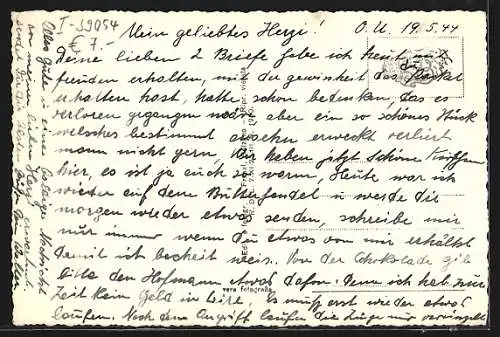 I-39054
€ 7.-
Mein geliebtes Herzi! O.U. 19.5.44
Deine lieben 2 Briefe habe ich heut mit
freuden erhalten, mit der gewissheit das
erhalten hast, hatte schon bedenken, das es
verloren gegangen aber ein so schönes Stück
welches bestimmt aussehn erweckt verliert
mann nicht gern. Wir haben jetzt schöne
hier, es ist ja auch so warm, Heute war ich
wieder auf dem u werde dir
morgen wieder etwas senden, schreibe mir
nur immer wenn du etwas von mir erhältst
damit ich bescheit weis. Von der Schokolade gib
bitte den Hofmann etwas dafon. Denn ich hab zur
Zeit kein Geld in Lire. Es muss erst wieder etwas
laufen. Nach dem Angriff laufen die Züge nur vereinzelt
Alles Gute u. eine baldige Nachricht
von seinen lieben Herzi
sendet Dir den lieben
vera fotografia